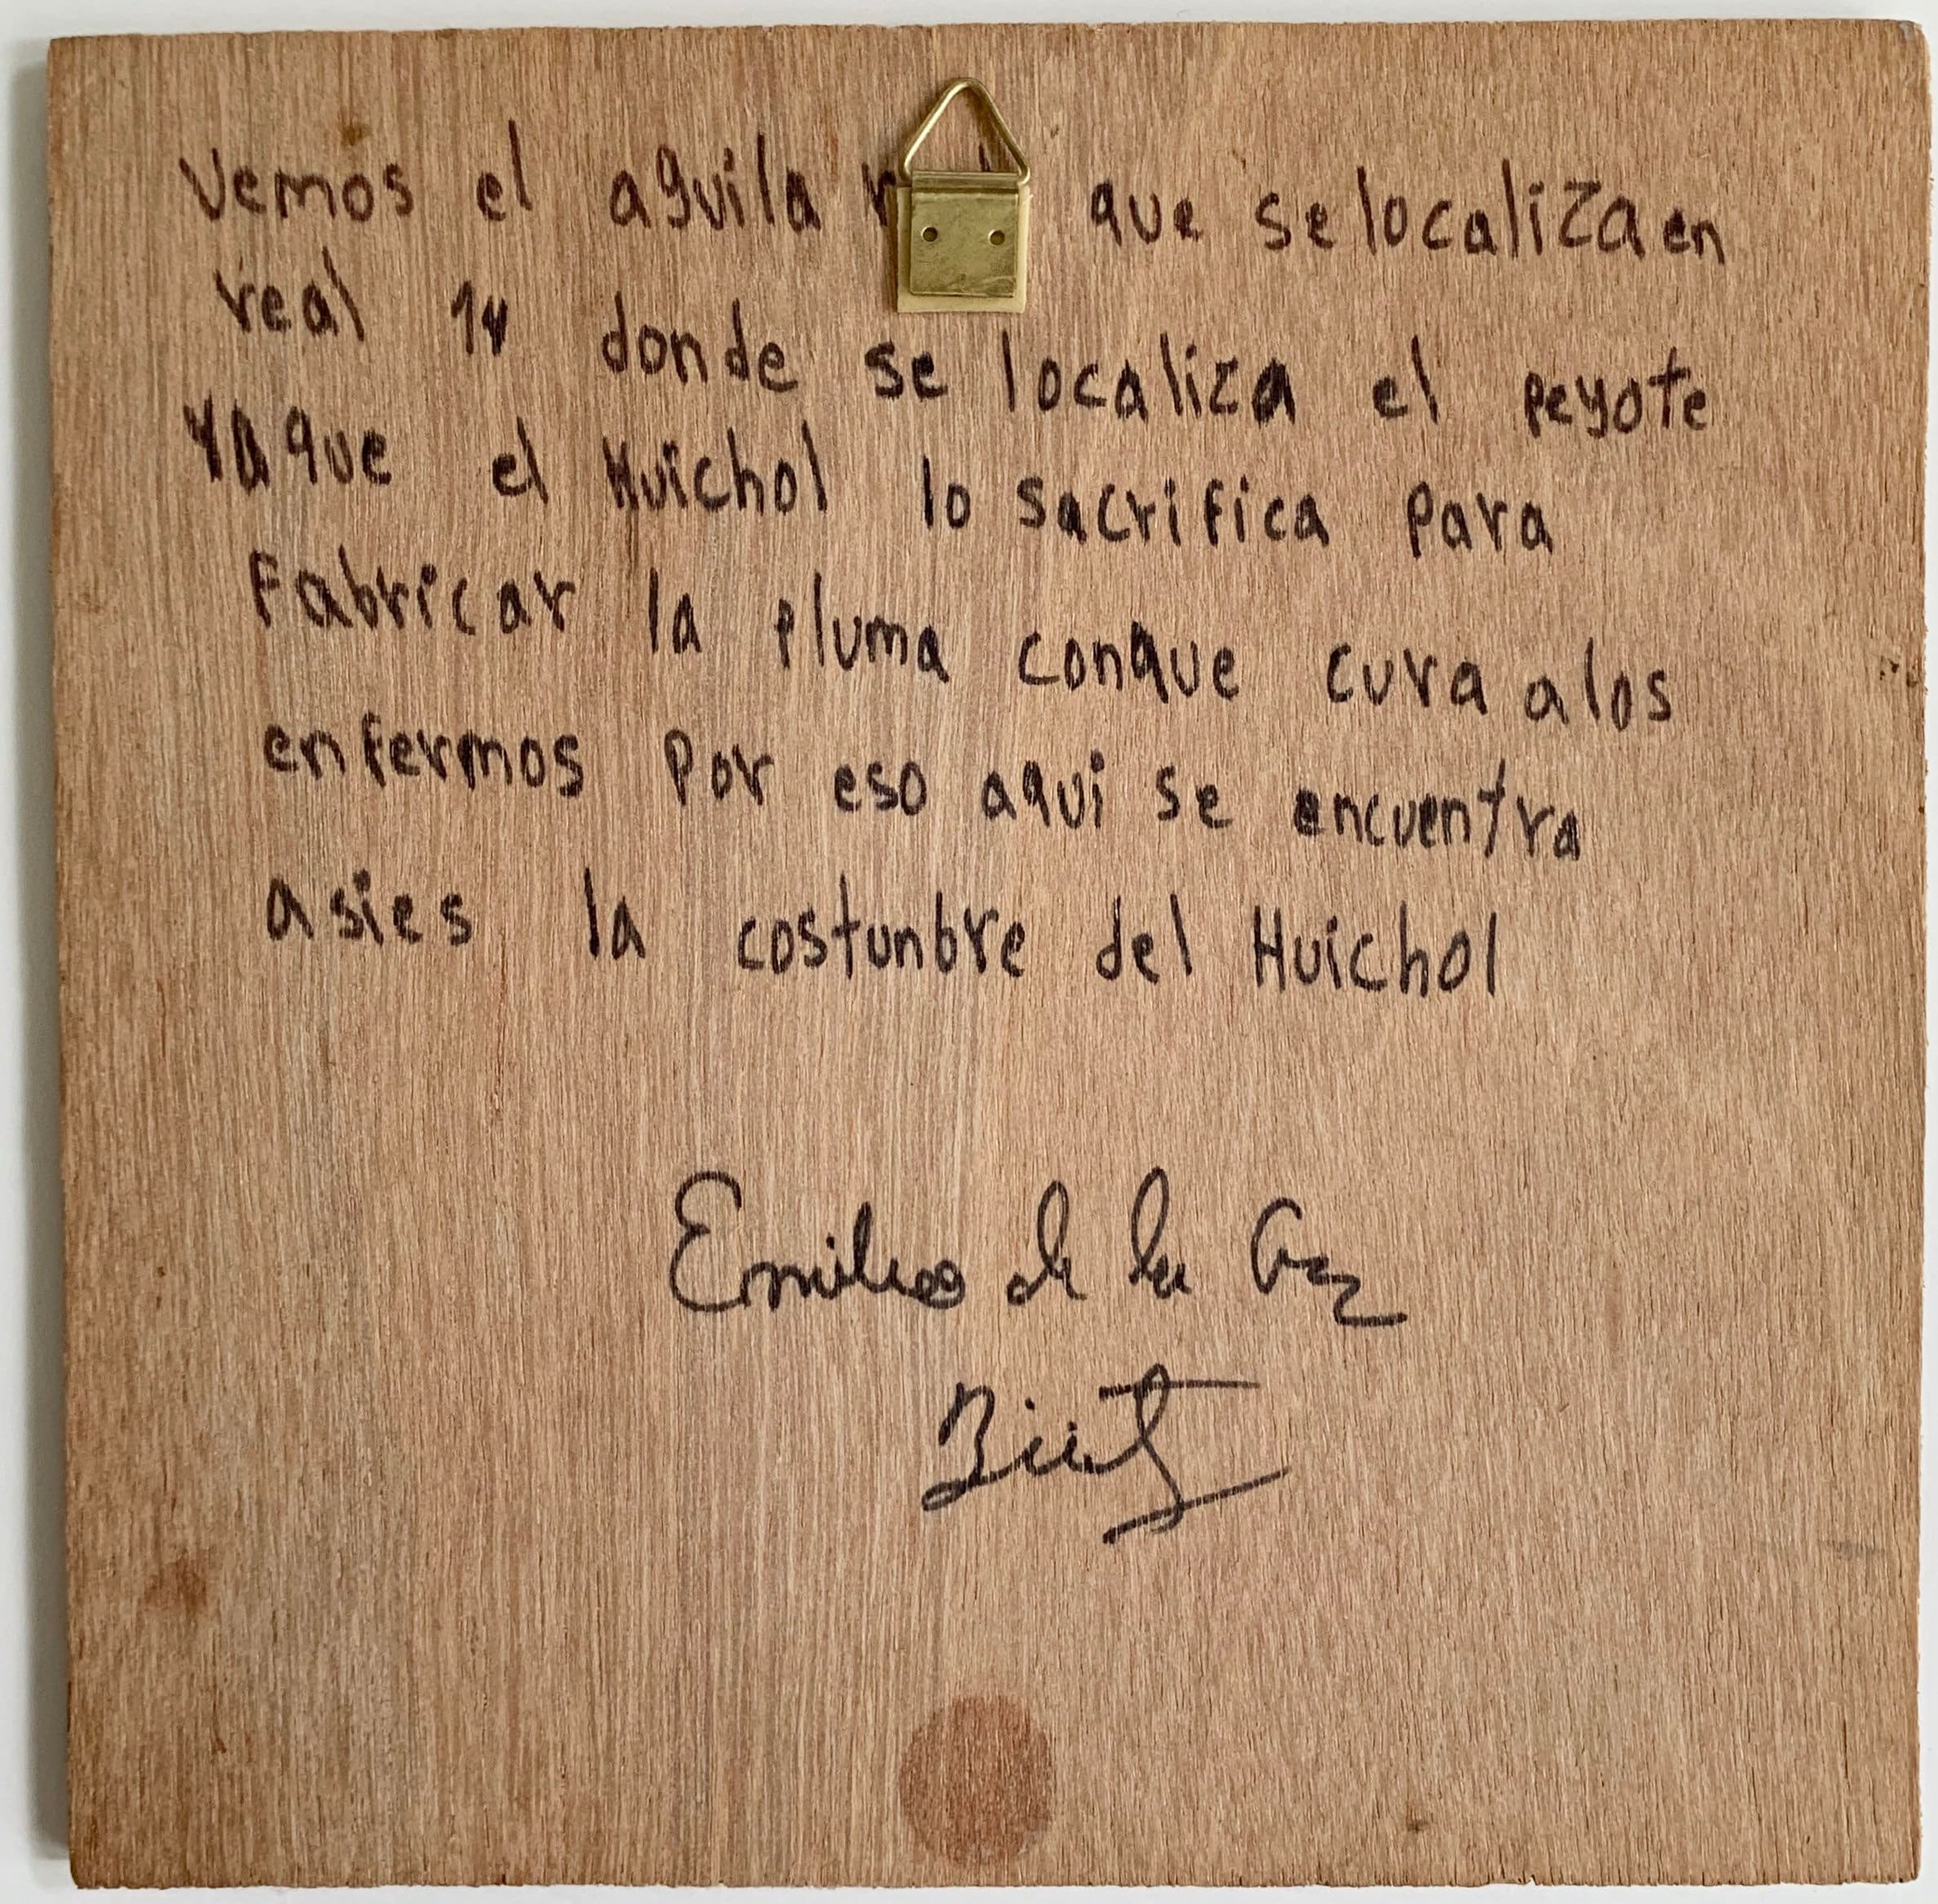 Vemos el aguila que selocaliza en
real 14 donde se localiza el peyote
ya que el Huichol lo sacrifica para
Fabricar la pluma conque cura alos
enfermos por eso aqui se encuentra
asies la costunbre del Huichol
Emilio de la Cruz